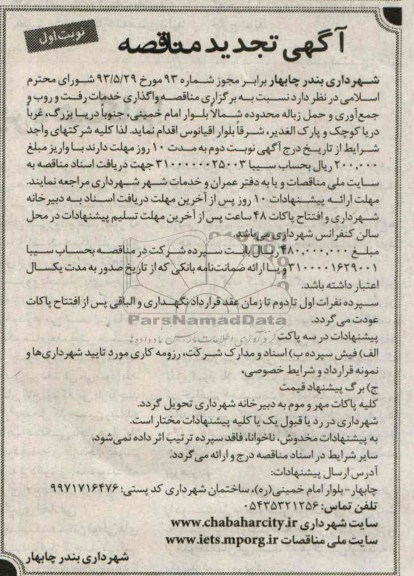 نوبت اول
آگهی تجدید مناقصه
شهرداری بندر چابهار برابر مجوز شماره ۹۳ مورخ ۹۳/۵/۲۹ شورای محترم
اسلامی در نظر دارد نسبت به برگزاری مناقصه واگذاری خدمات رفت و روب و
جمع‌آوری و حمل زباله محدوده شمالاً بلوار امام خمینی، جنوباً دریا بزرگ، غرباً
دریا کوچک و پارک الغدیر، شرقاً بلوار اقیانوس اقدام نماید. لذا کلیه شرکتهای واجد
شرایط از تاریخ درج آگهی نوبت دوم به مدت ۱۰ روز مهلت دارند با واریز مبلغ
۲۰۰,۰۰۰ ریال بحساب سیبا ۳۱۰۰۰۰۰۰۲۵۰۰۳ جهت دریافت اسناد مناقصه به
سایت ملی مناقصات و یا به دفتر عمران و خدمات شهر شهرداری مراجعه نمایند.
مهلت ارائه پیشنهادات ۱۰ روز پس از آخرین مهلت دریافت اسناد به دبیرخانه
شهرداری و افتتاح پاکات ۴۸ ساعت پس از آخرین مهلت تسلیم پیشنهادات در محل
سالن کنفرانس شهرداری می‌باشد.
مبلغ ۴۸۰,۰۰۰,۰۰۰ ریال بابت سپرده شرکت در مناقصه بحساب سیبا
۳۱۰۰۰۰۱۶۲۹۰۰۱ و یا ارائه ضمانت‌نامه بانکی که از تاریخ صدور به مدت یکسال
اعتبار داشته باشد.
سپرده نفرات اول تا دوم تا زمان عقد قرارداد نگهداری و الباقی پس از افتتاح پاکات
عودت می‌گردد.
ParsNamadData
پیشنهادات در سه پاکت
الف) فیش سپرده ب) اسناد و مدارک شرکت، رزومه کاری مورد تایید شهرداری‌ها و
نمونه قرارداد و شرایط خصوصی،
ج) برگ پیشنهاد قیمت
کلیه پاکات مهر و موم به دبیرخانه شهرداری تحویل گردد.
شهرداری در رد یا قبول یک یا کلیه پیشنهادات مختار است.
به پیشنهادات مخدوش، ناخوانا، فاقد سپرده ترتیب اثر داده نمی‌شود.
سایر شرایط در اسناد مناقصه درج و ارائه می‌گردد.
آدرس ارسال پیشنهادات:
چابهار-بلوار امام خمینی(ره)، ساختمان شهرداری کد پستی: ۹۹۷۱۷۱۶۴۷۶
تلفن تماس: ۰۵۴۳۵۳۲۱۲۵۶
سایت شهرداری www.chabaharcity.ir
سایت ملی مناقصات www.iets.mporg.ir
شهرداری بندر چابهار